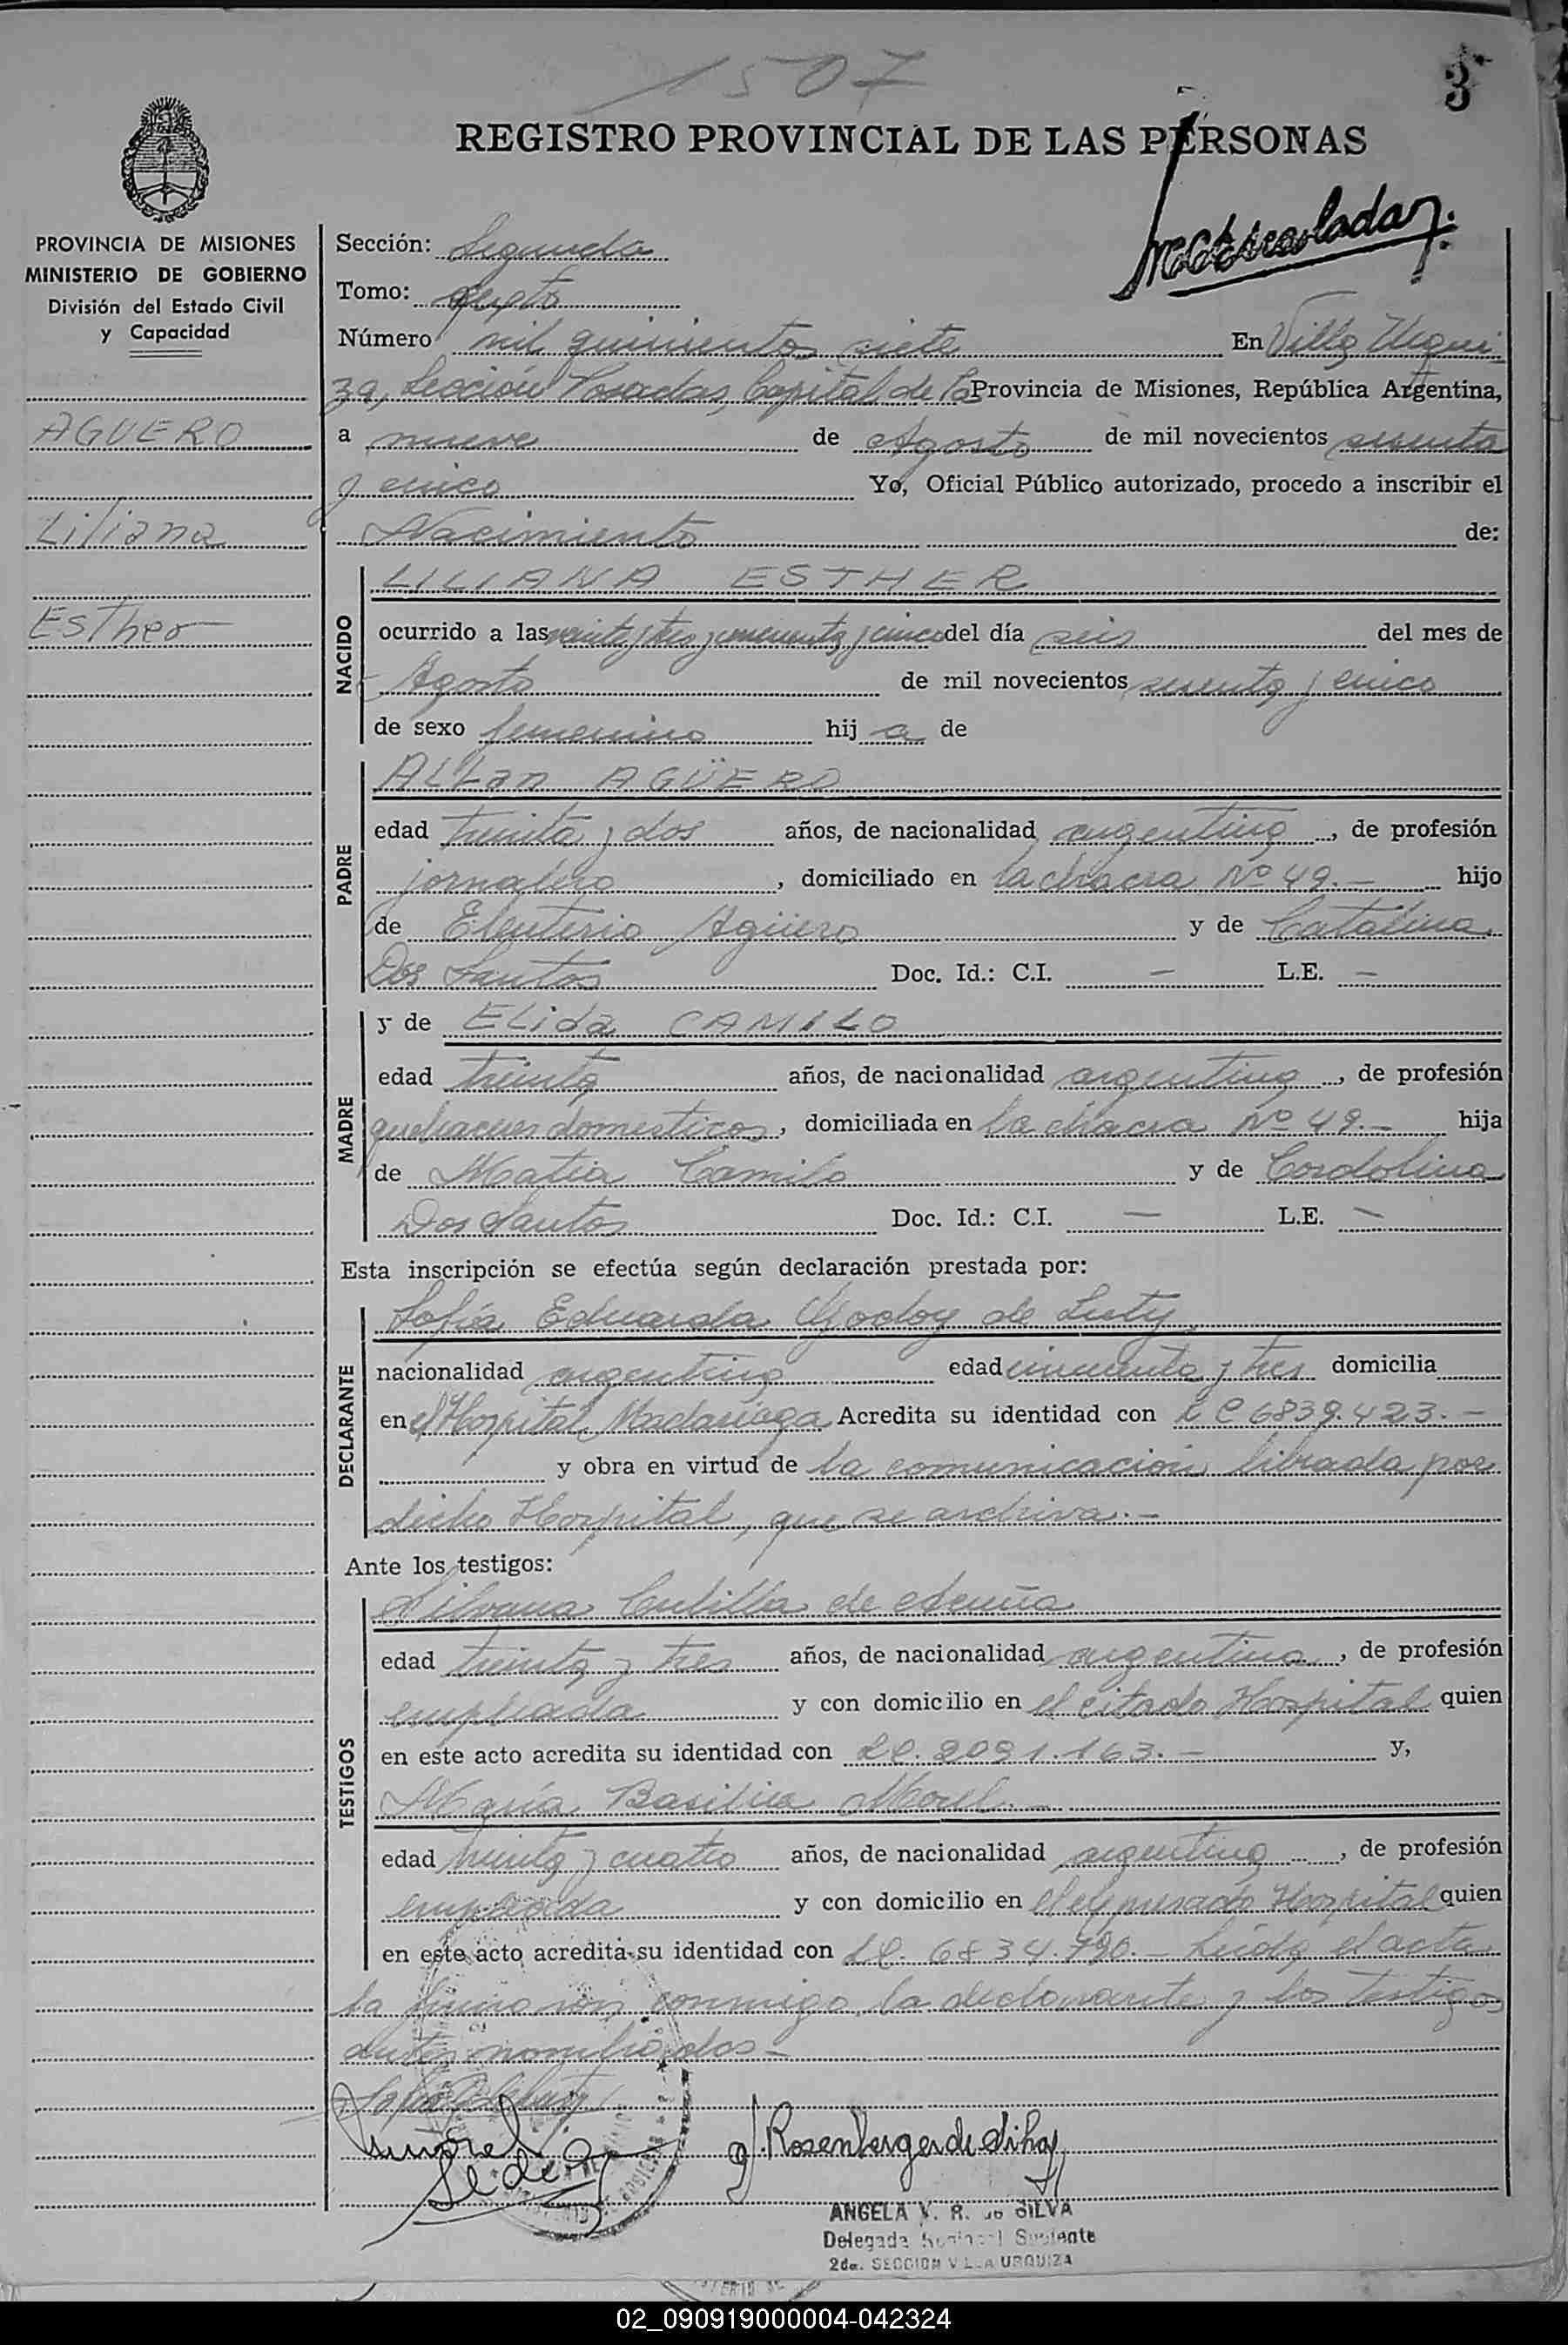 1507
3
REGISTRO PROVINCIAL DE LAS PERSONAS
Matriculada
PROVINCIA DE MISIONES
MINISTERIO DE GOBIERNO
División del Estado Civil
y Capacidad
AGUERO
Liliana
Esther
Sección: Segunda
Tomo: sexto
Número mil quinientos siete En Villa Urqui
za, Sección Posadas, Capital de la Provincia de Misiones, República Argentina,
a nueve de Agosto de mil novecientos sesenta
y cinco Yo, Oficial Público autorizado, procedo a inscribir el
Nacimiento de:
NACIDO
LILIANA ESTHER
ocurrido a las veinte y tres y cincuenta y cinco del día seis del mes de
Agosto de mil novecientos sesenta y cinco
de sexo femenino hij a de
PADRE
Allan AGÜERO
edad treinta y dos años, de nacionalidad argentina, de profesión
jornalero, domiciliado en la chacra Nº 49.- hijo
de Eleuterio Agüero y de Catalina
Dos Santos Doc. Id.: C.I. — L.E. —
MADRE
y de Elida CAMILO
edad treinta años, de nacionalidad argentina, de profesión
quehaceres domesticos, domiciliada en la chacra Nº 49.- hija
de Matia Camilo y de Cordolina
Dos Santos Doc. Id.: C.I. — L.E. —
Esta inscripción se efectúa según declaración prestada por:
DECLARANTE
Sofía Eduarda Godoy de
nacionalidad argentina edad cincuenta y tres domicilia
en el Hospital Madariaga Acredita su identidad con LC 6839.423.-
y obra en virtud de la comunicación librada por
dicho Hospital, que se archiva.-
Ante los testigos:
TESTIGOS
Silvana de Acuña
edad treinta y tres años, de nacionalidad argentina, de profesión
empleada y con domicilio en el citado Hospital quien
en este acto acredita su identidad con LC. 2091.163.- y,
María Basilia Morel
edad treinta y cuatro años, de nacionalidad argentina, de profesión
empleada y con domicilio en el expresado Hospital quien
en este acto acredita su identidad con LC. 6834.790.- Leída el acta
la firmaron conmigo, la declarante y los testigos
antes nombrados-
Rosenberger de Silva
ANGELA V. R. de SILVA
Delegada Suplente
2da. SECCION VILLA URQUIZA
02_090919000004-042324